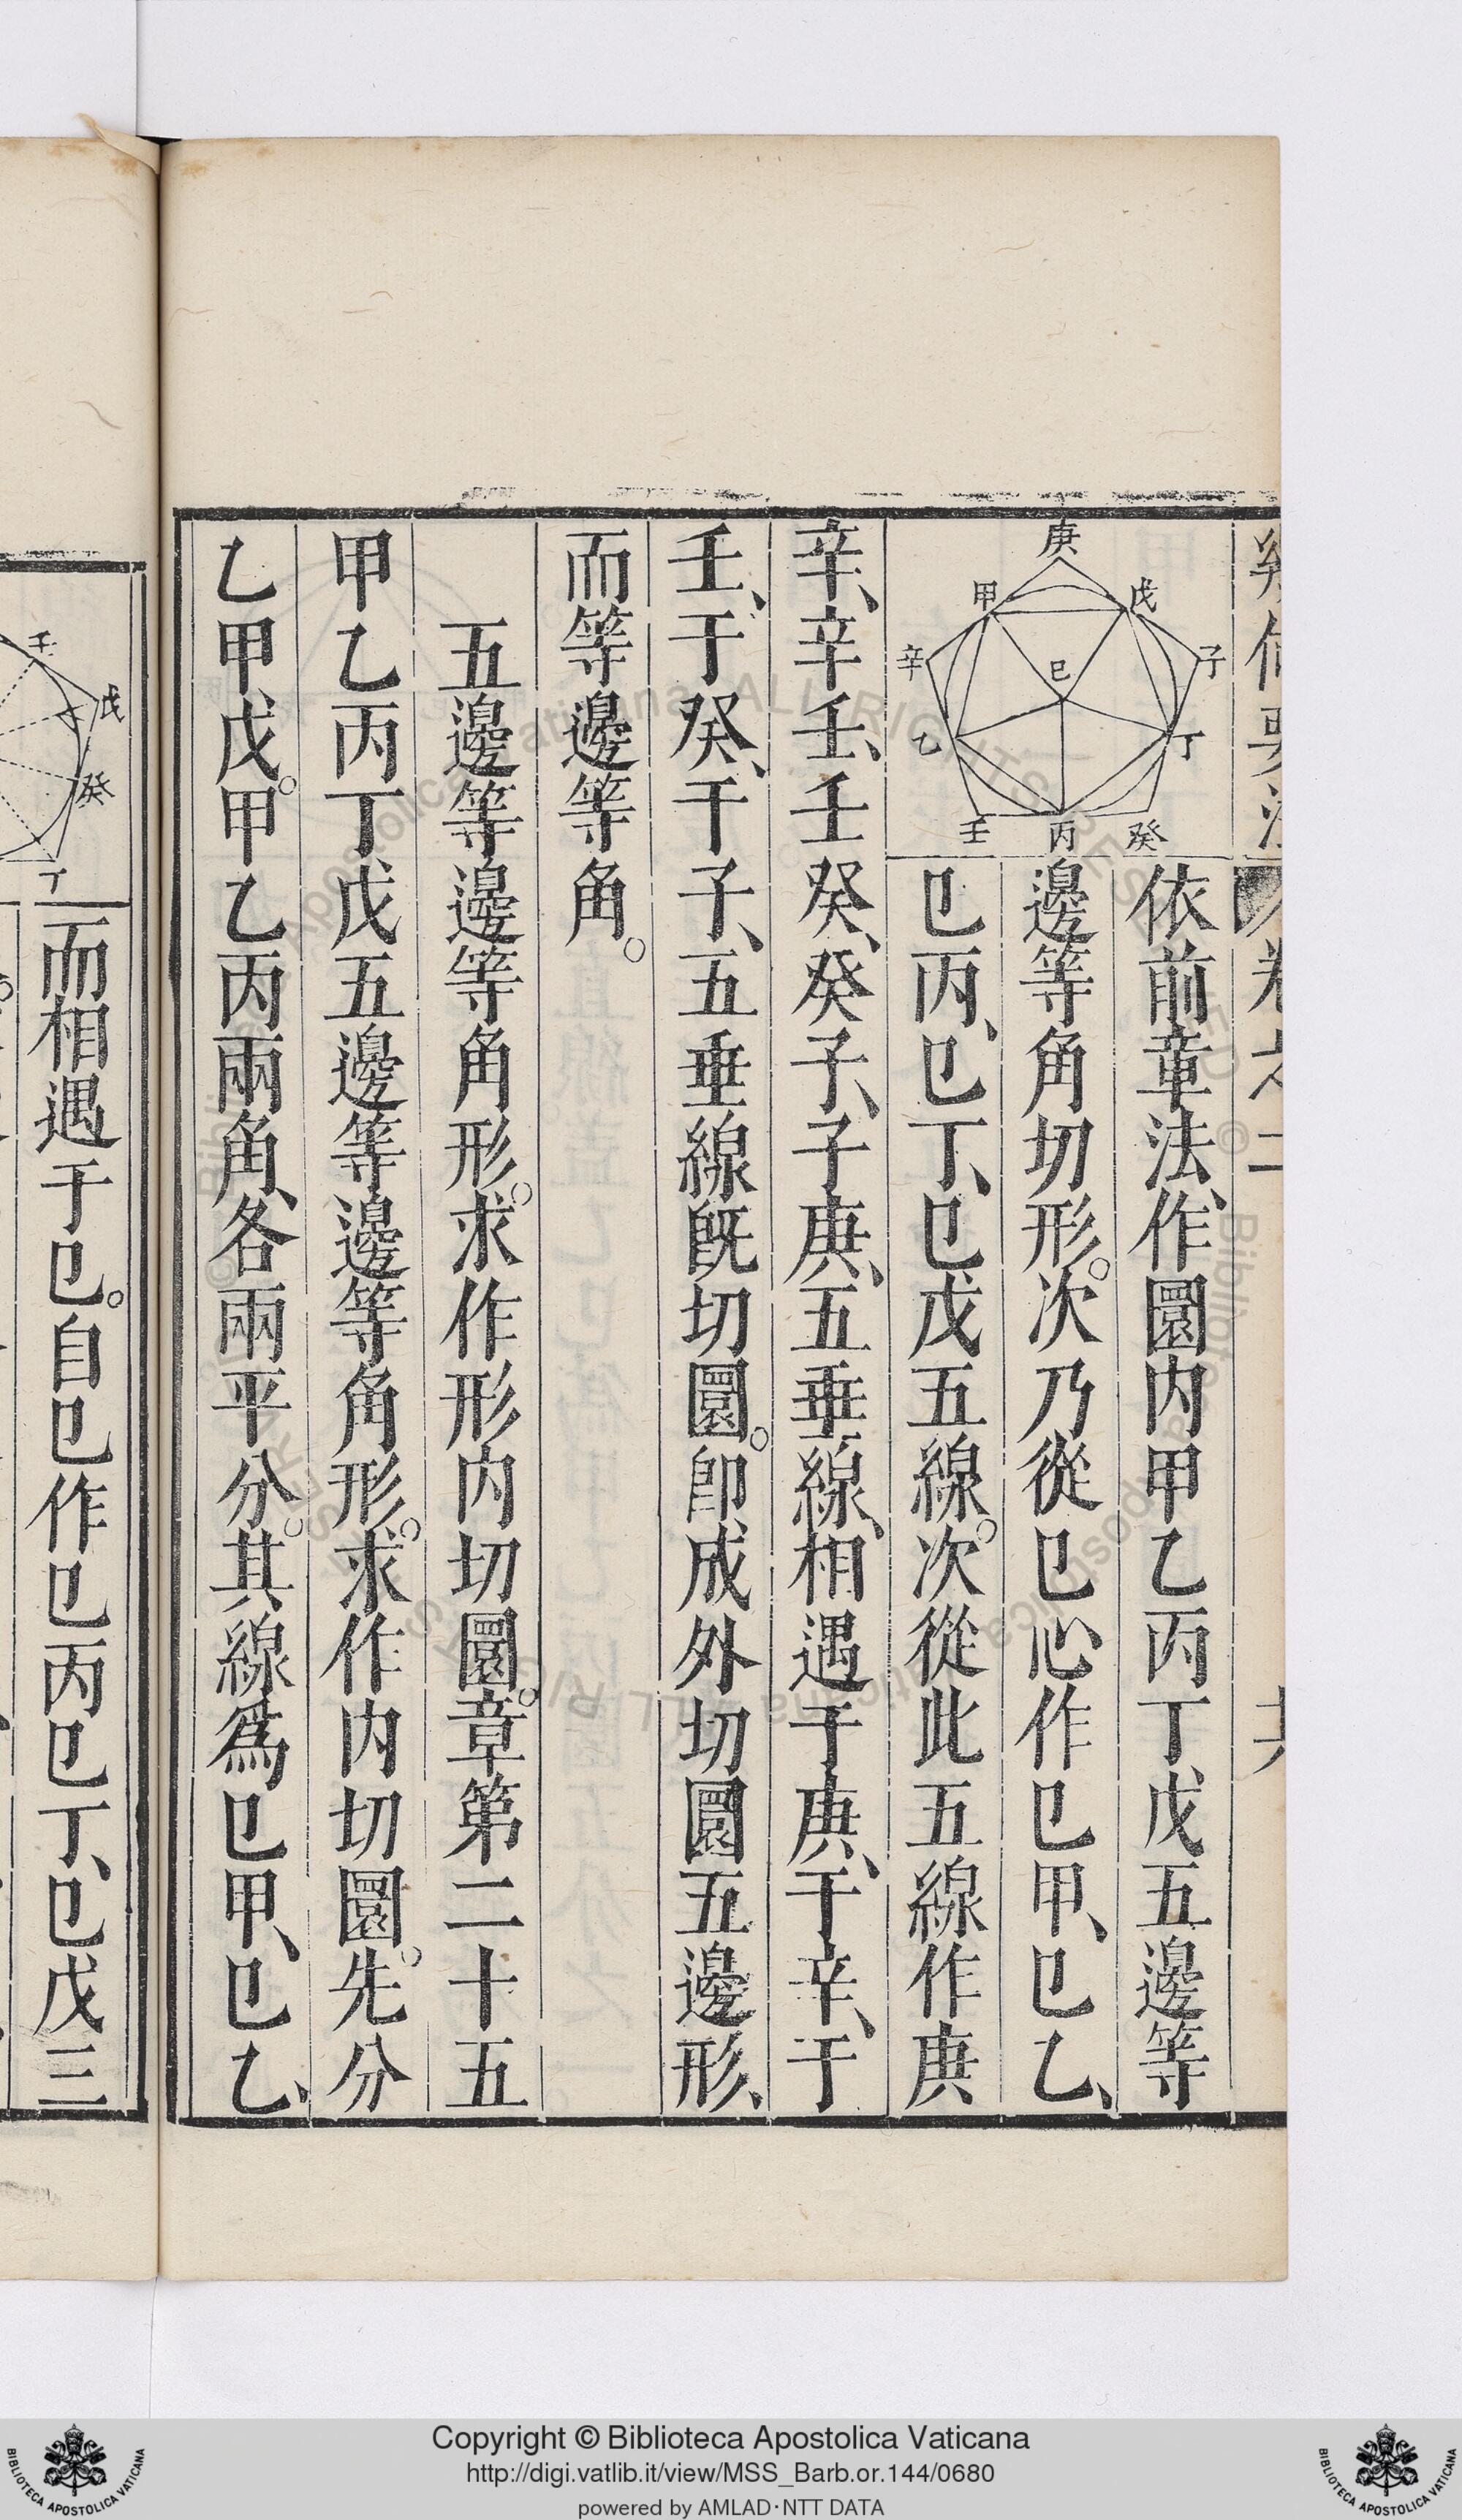 庚
甲
戊
辛
子
己
乙
丁
壬
丙
癸
依前章法、作圜内甲乙丙丁戊五邊等
邊等角切形。次乃從己心作己甲、己乙、
己丙、己丁、己戊五線。次從此五線作庚
辛、辛壬、壬癸、癸子、子庚、五垂線、相遇于庚、于辛、于
壬、于癸、于子、五垂線既切圜。卽成外切圜五邊形、
而等邊等角。
五邊等邊等角形。求作形内切圜。章第二十五
甲乙丙丁戊五邊等邊等角形。求作内切圜。先分
乙甲戊。甲乙丙兩角、各兩平分。其線爲己甲、己乙、
壬
戊
癸
丁
而相遇于己。自己作己丙己丁、己戊三
Copyright © Biblioteca Apostolica Vaticana
http://digi.vatlib.it/view/MSS_Barb.or.144/0680
powered by AMLAD·NTT DATA
BIBLIOTECA APOSTOLICA VATICANA
BIBLIOTECA APOSTOLICA VATICANA